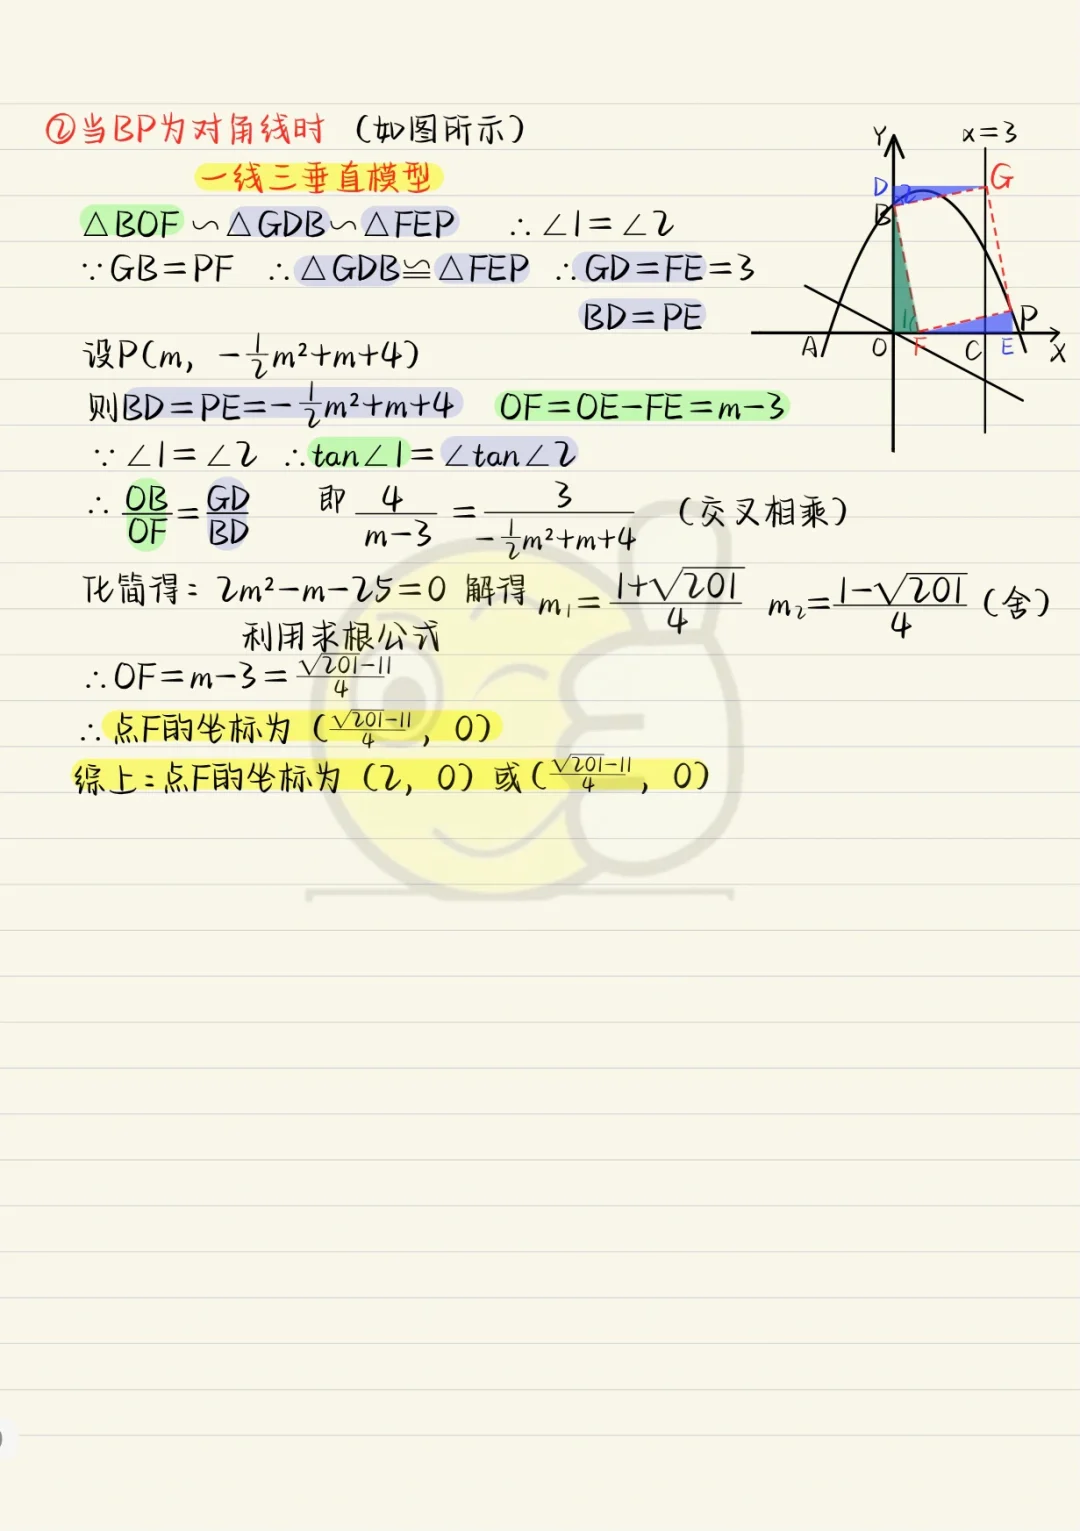 ②当BP为对角线时 (如图所示)
一线三垂直模型
△BOF∽△GDB∽△FEP ∴∠1=∠2
∵GB=PF ∴△GDB≌△FEP ∴GD=FE=3
BD=PE
设P(m, -½m²+m+4)
则BD=PE=-½m²+m+4 OF=OE-FE=m-3
∵∠1=∠2 ∴tan∠1=∠tan∠2
∴ OB/OF = GD/BD 即 4/(m-3) = 3/(-½m²+m+4) (交叉相乘)
化简得: 2m²-m-25=0 解得 m₁=(1+√201)/4 m₂=(1-√201)/4 (舍)
利用求根公式
∴OF=m-3=(√201-11)/4
∴点F的坐标为 ((√201-11)/4, 0)
综上:点F的坐标为 (2, 0) 或 ((√201-11)/4, 0)
Y x=3
D 2 G
B
1 P
A O F C E X